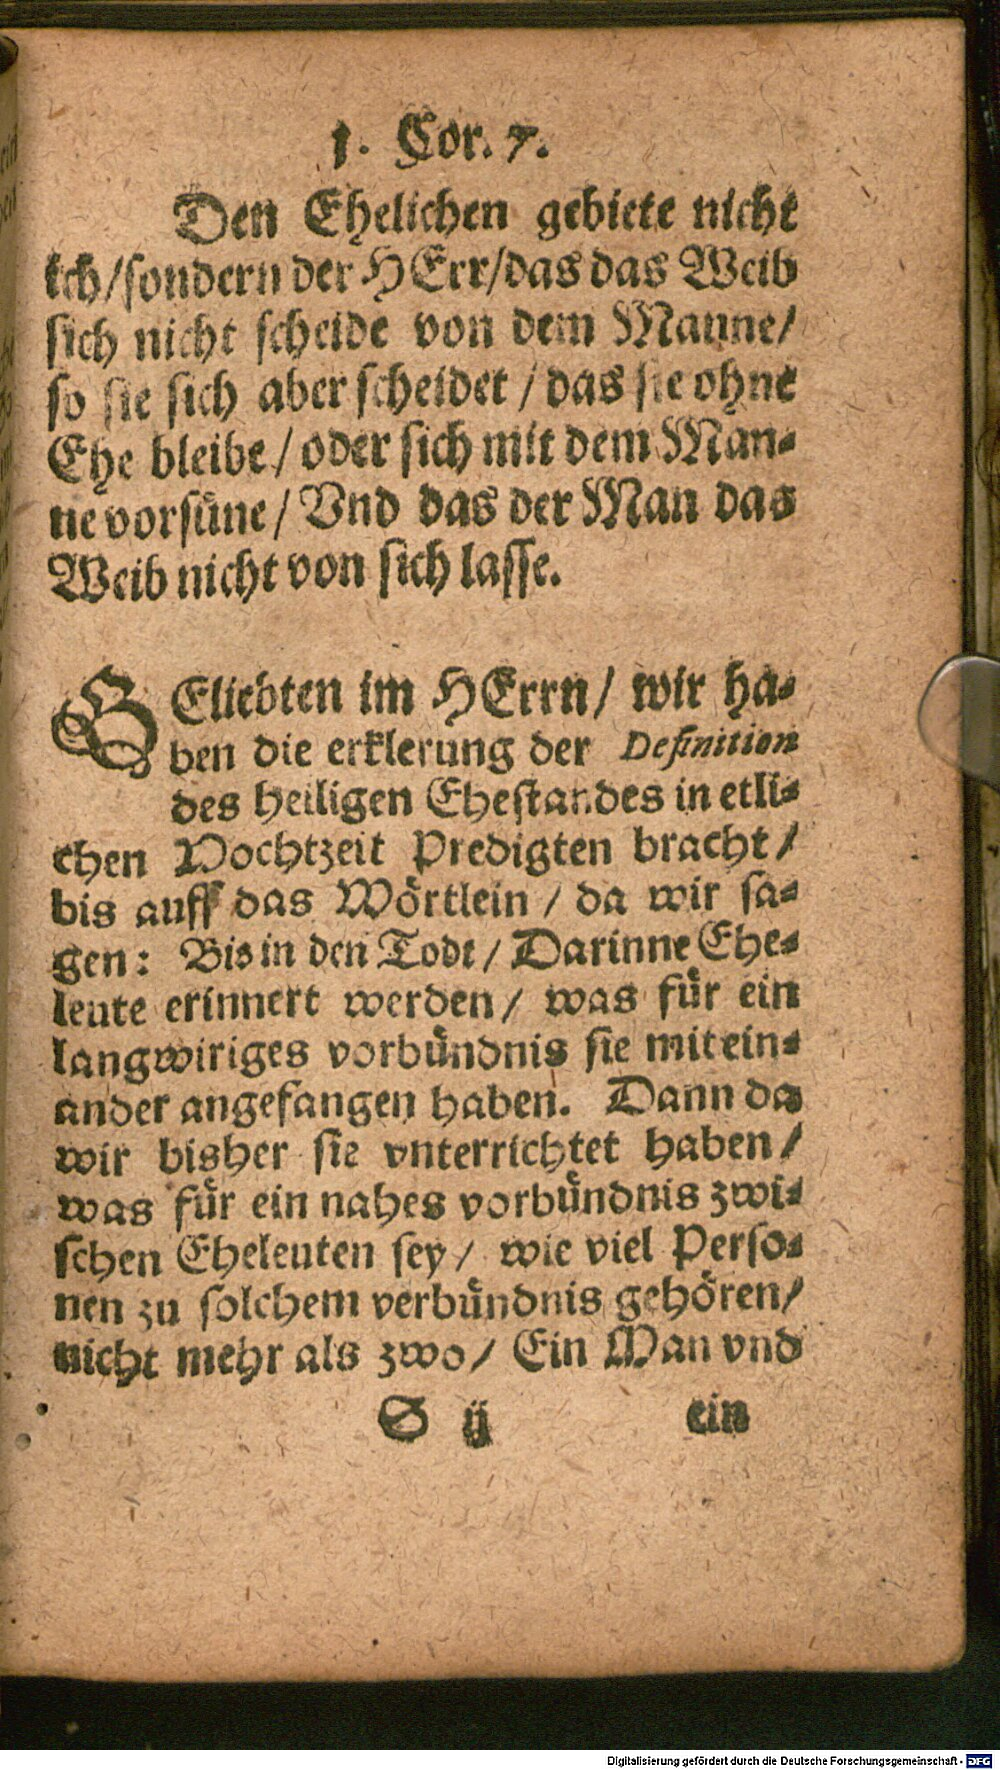 1. Cor. 7.
Den Ehelichen gebiete nicht
ich/sondern der HErr/das das Weib
sich nicht scheide von dem Manne/
so sie sich aber scheidet / das sie ohne
Ehe bleibe / oder sich mit dem Man-
ne vorsüne / Vnd das der Man das
Weib nicht von sich lasse.
GEliebten im HErrn / wir ha-
ben die erklerung der Definition
des heiligen Ehestandes in etli-
chen Hochtzeit Predigten bracht /
bis auff das Wörtlein / da wir sa-
gen: Bis in den Todt / Darinne Ehe-
leute erinnert werden / was für ein
langwiriges vorbündnis sie mit ein-
ander angefangen haben. Dann da
wir bisher sie vnterrichtet haben /
was für ein nahes vorbündnis zwi-
schen Eheleuten sey / wie viel Perso-
nen zu solchem verbündnis gehören /
nicht mehr als zwo / Ein Man vnd
S ij ein
Digitalisierung gefördert durch die Deutsche Forschungsgemeinschaft - DFG